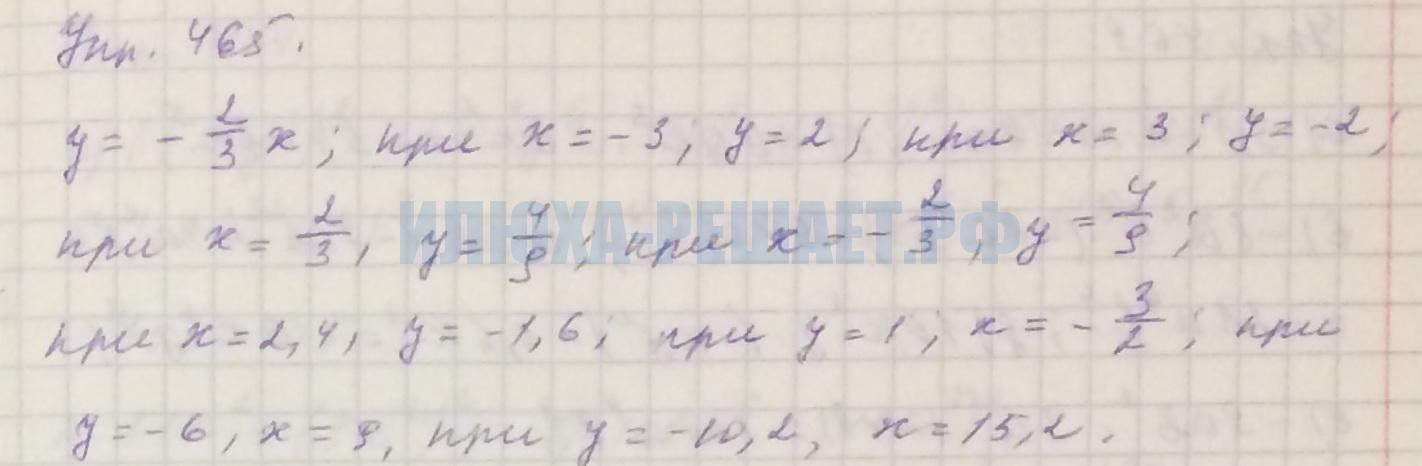 Упр. 465.
y = - 2/3 x; при x = -3; y = 2; при x = 3; y = -2;
при x = 2/3, y = 4/9; при x = - 2/3, y = 4/9;
ИЛЮХА-РЕШАЕТ.РФ
при x = 2,4, y = -1,6; при y = 1; x = - 3/2; при
y = -6, x = 9, при y = -10,2, x = 15,2.